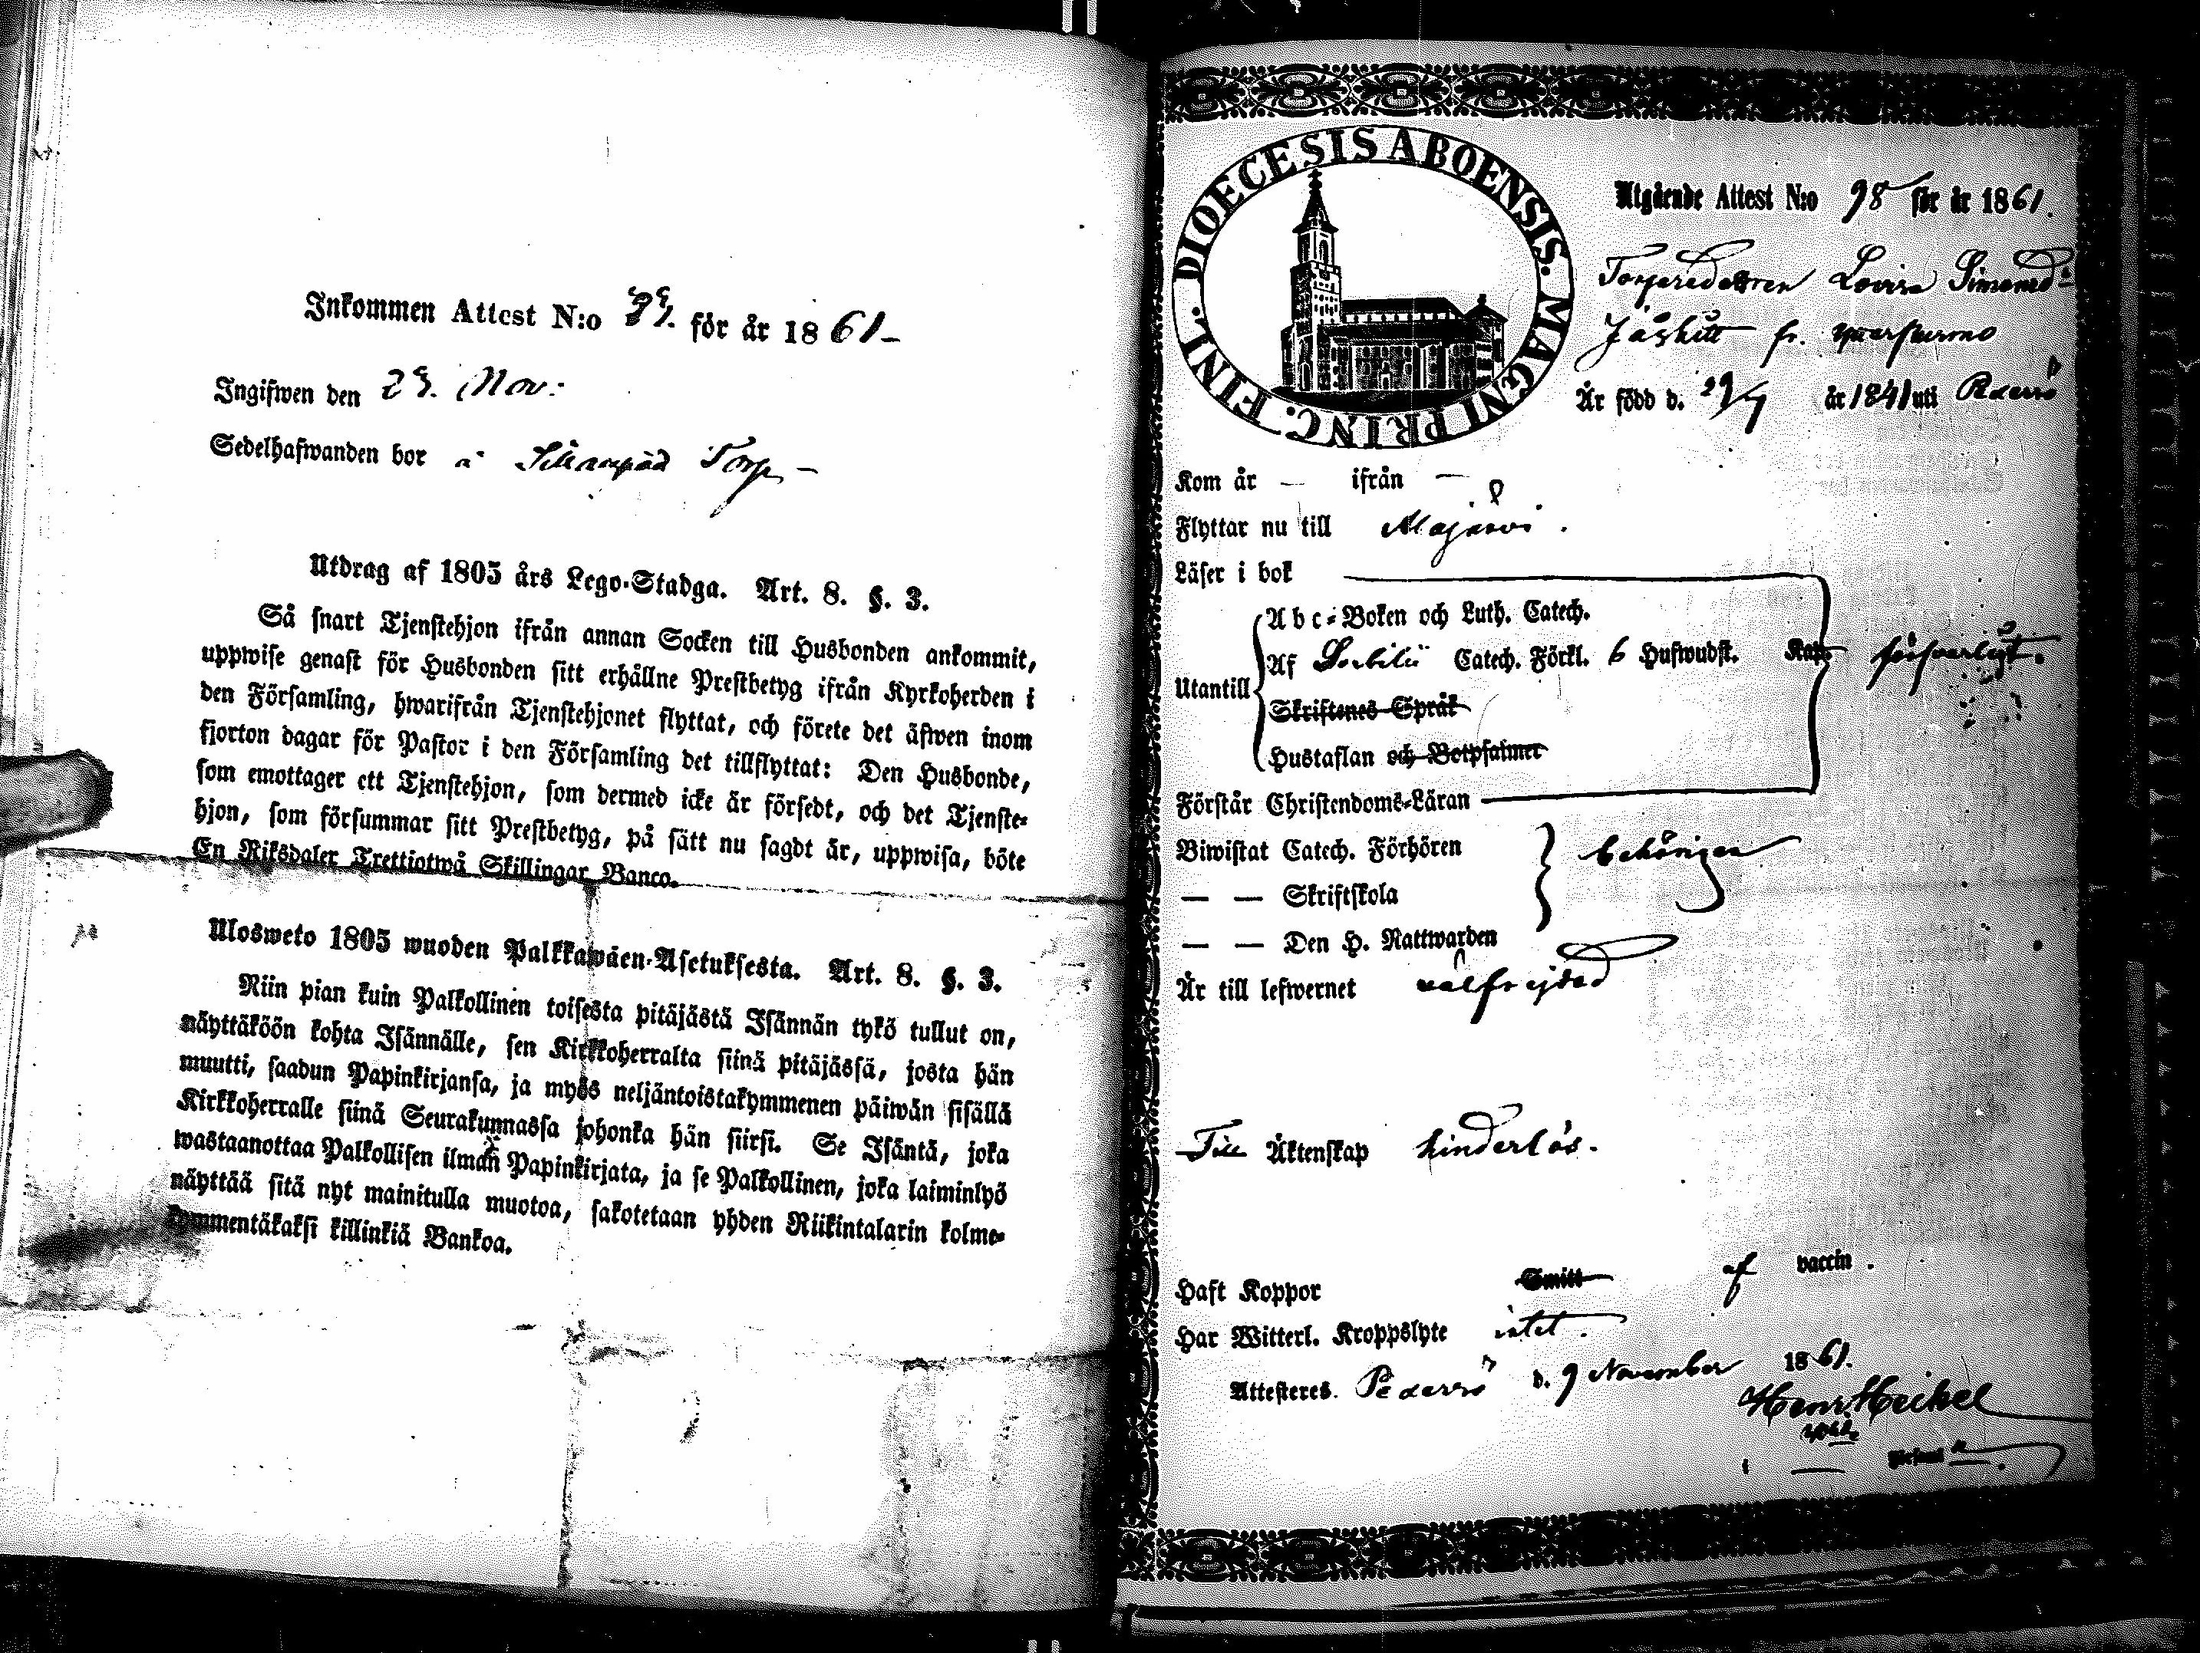 Inkommen Attest N:o för år 1861
Ingifwen den 29. Nov:
Sedelhafwanden bor å Torp
Utdrag af 1805 års Lego-Stadga. Art. 8. §. 3.
Så snart Tjenstehjon ifrån annan Socken till Husbonden ankommit,
uppwise genast för Husbonden sitt erhållne Prestbetyg ifrån Kyrkoherden i
den Församling, hwarifrån Tjenstehjonet flyttat, och förete det äfwen inom
fjorton dagar för Pastor i den Församling det tillflyttat: Den Husbonde,
som emottager ett Tjenstehjon, som dermed icke är försedt, och det Tjenste-
hjon, som försummar sitt Prestbetyg, på sätt nu sagdt är, uppwisa, böte
En Riksdaler Trettiotwå Skillingar Banco.
Ulosweto 1805 wuoden Palkkawäen-Asetuksesta. Art. 8. §. 3.
Niin pian kuin Palkollinen toisesta pitäjästä Isännän tykö tullut on,
näyttäköön kohta Isännälle, sen Kirkkoherralta siinä pitäjässä, josta hän
muutti, saadun Papinkirjansa, ja myös neljäntoistakymmenen päiwän sisällä
Kirkkoherralle siinä Seurakunnassa johonka hän siirsi. Se Isäntä, joka
wastaanottaa Palkollisen ilman Papinkirjata, ja se Palkollinen, joka laiminlyö
näyttää sitä nyt mainitulla muotoa, sakotetaan yhden Riikintalarin kolme-
kymmentäkaksi killinkiä Bankoa.
DIOECESIS ABOENSIS. MAGNI. PRINC. FINL.
Utgående Attest N:o 98 för år 1861.
Lovisa Simonsd:r
fr.
Är född d. 29/4 år 1841 uti Pedersö
Kom år — ifrån —
Flyttar nu till Alajärvi.
Läser i bok
Abc-Boken och Luth. Catech.
Af Svebilii Catech. Förkl. 6 Hufwudst. Kap. försvarligt.
Utantill
Skriftenes Språk
Hustaflan och Botpsalmer
Förstår Christendoms-Läran
Biwistat Catech. Förhören behörigen
— — Skriftskola
— — Den H. Nattwarden
Är till lefwernet välfrejdad
Till Äktenskap hinderlös.
Haft Koppor Smitt af vaccin.
Har Witterl. Kroppslyte intet.
Attesteras. Pedersö d. 9 November 1861.
Henr Heikel